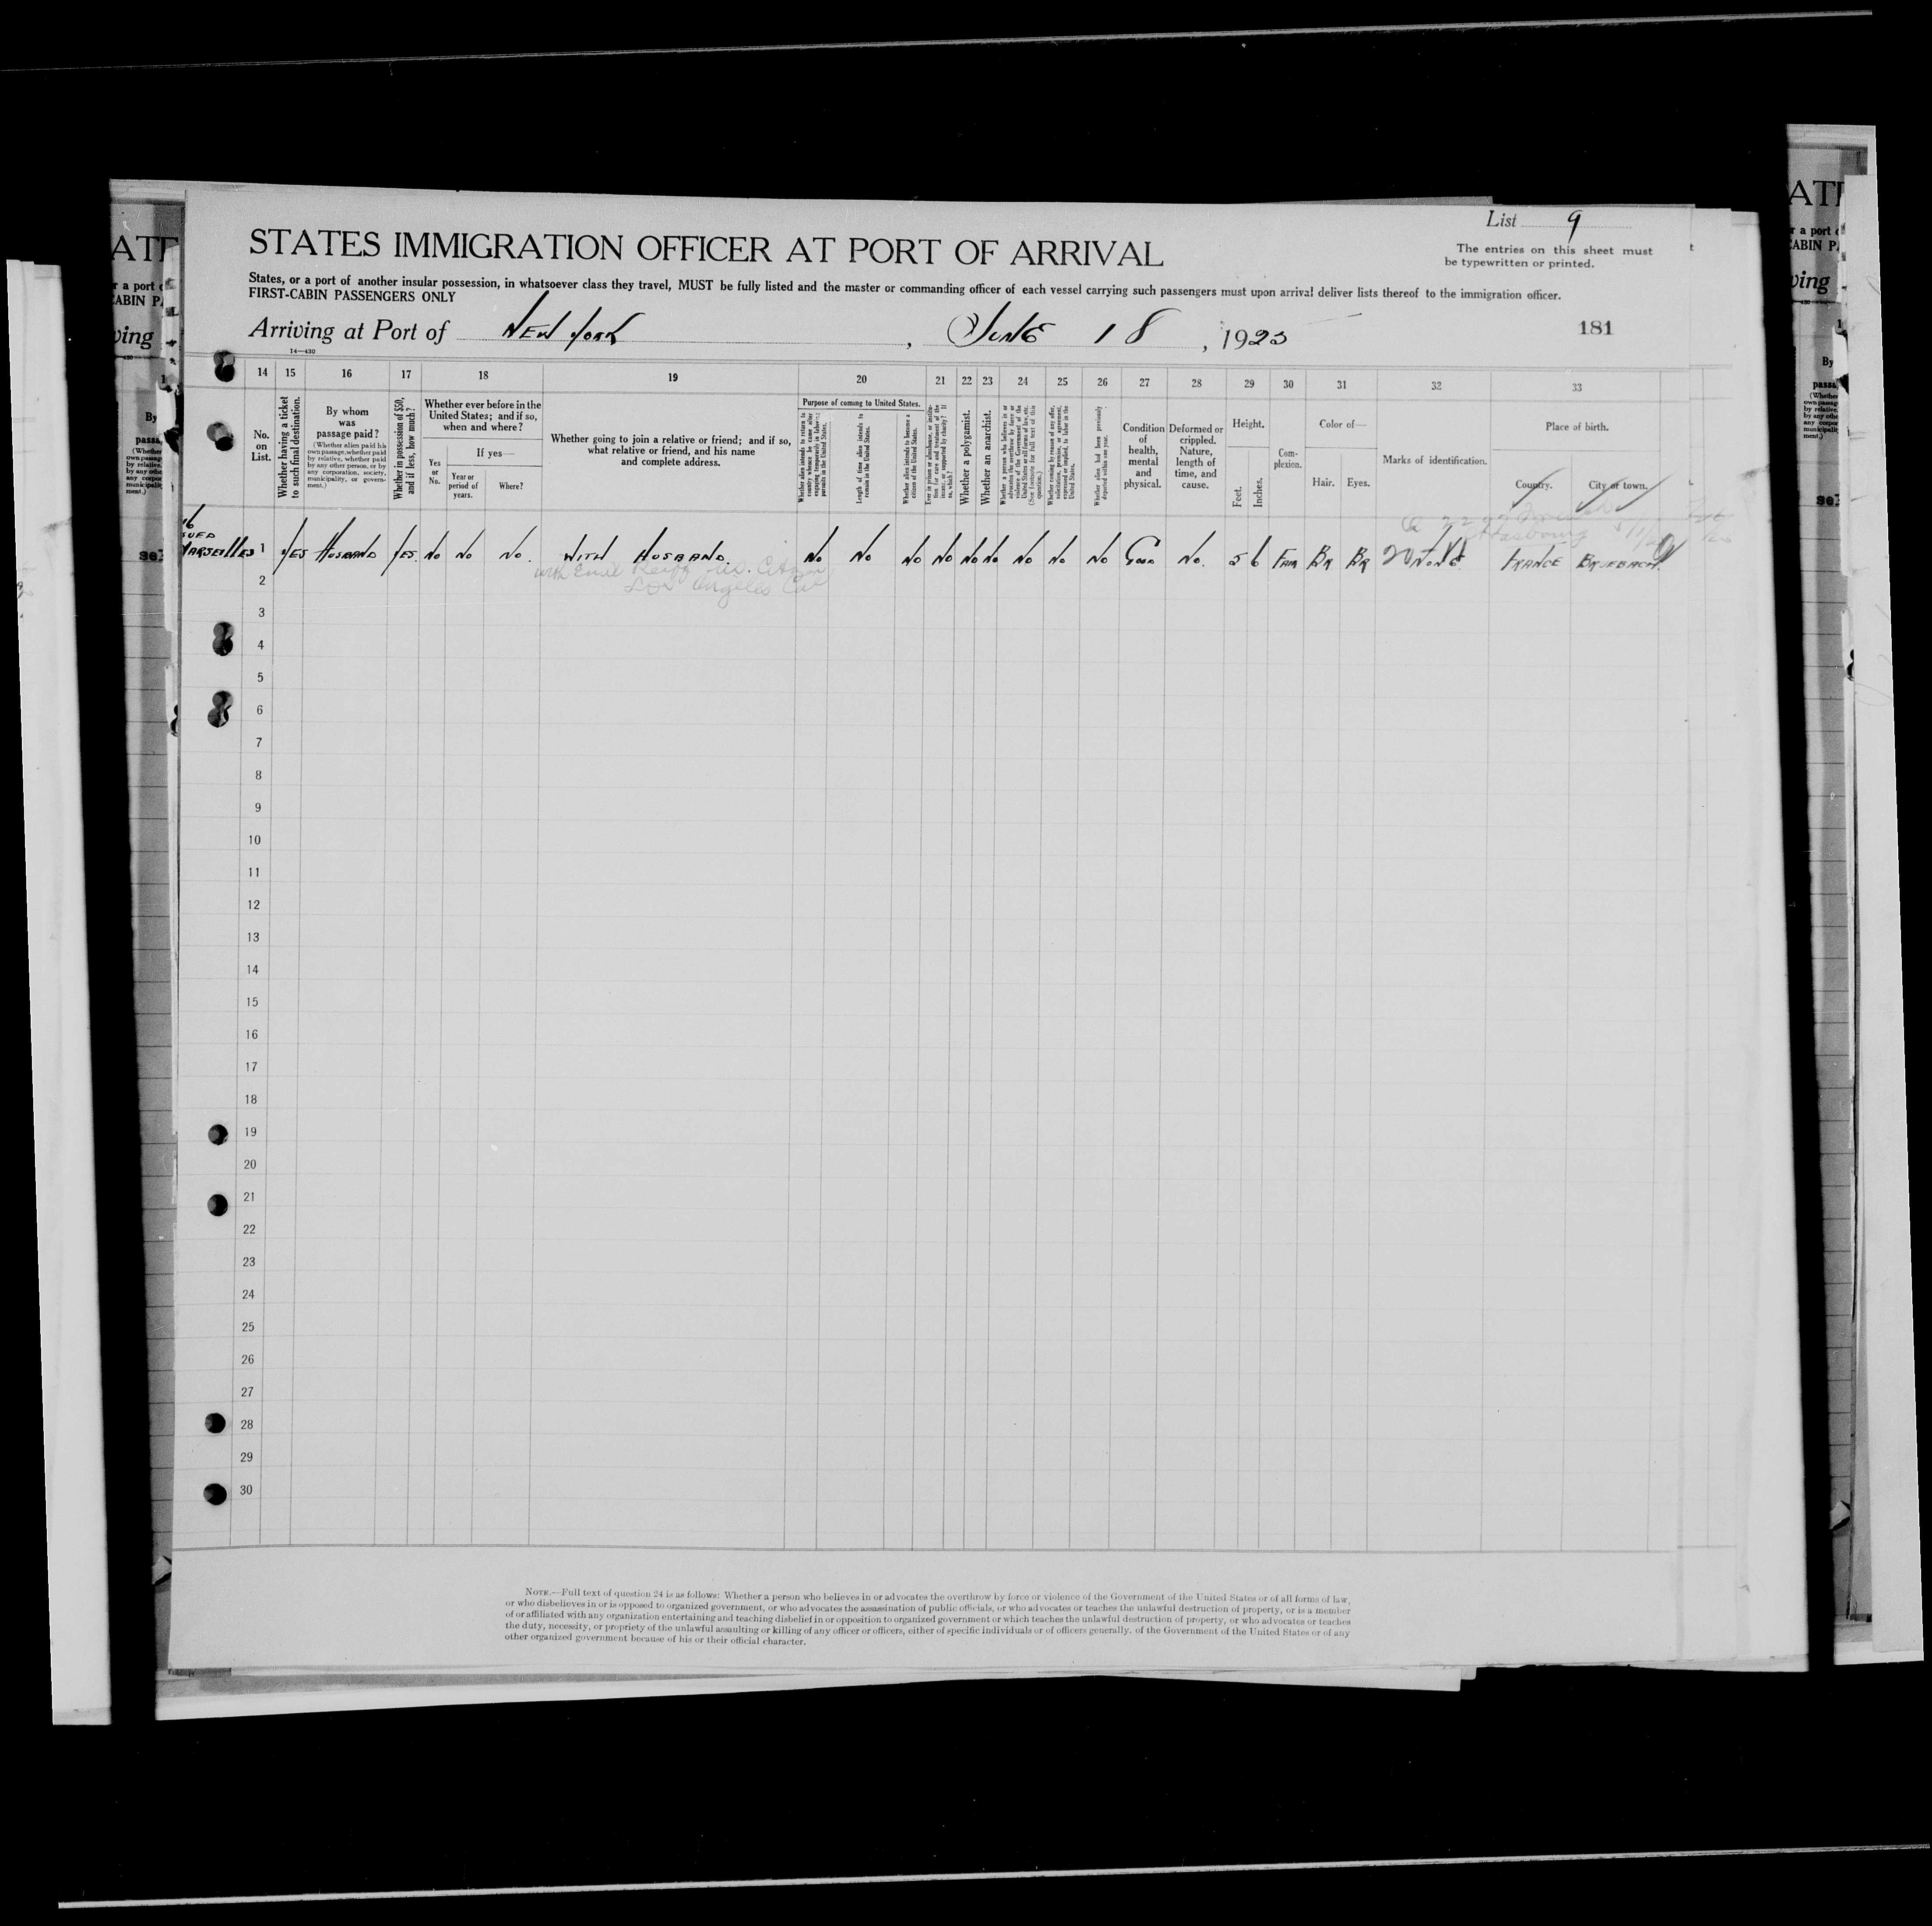 List 9
STATES IMMIGRATION OFFICER AT PORT OF ARRIVAL
The entries on this sheet must
be typewritten or printed.
States, or a port of another insular possession, in whatsoever class they travel, MUST be fully listed and the master or commanding officer of each vessel carrying such passengers must upon arrival deliver lists thereof to the immigration officer.
FIRST-CABIN PASSENGERS ONLY
Arriving at Port of NEW YORK, JUNE 18, 1923
181
14—430
14 15 16 17 18 19 20 21 22 23 24 25 26 27 28 29 30 31 32 33
No. on List.
Whether having a ticket to such final destination.
By whom was passage paid?
(Whether alien paid his own passage, whether paid by relative, whether paid by any other person, or by any corporation, society, municipality, or government.)
Whether in possession of $50, and if less, how much?
Whether ever before in the United States; and if so, when and where?
Yes or No.
If yes—
Year or period of years.
Where?
Whether going to join a relative or friend; and if so, what relative or friend, and his name and complete address.
Purpose of coming to United States.
Whether alien intends to return to country whence he came after engaging temporarily in laboring pursuits in the United States.
Length of time alien intends to remain in the United States.
Whether alien intends to become a citizen of the United States.
Ever in prison or almshouse, or institution for care and treatment of the insane, or supported by charity? If so, which?
Whether a polygamist.
Whether an anarchist.
Whether a person who believes in or advocates the overthrow by force or violence of the Government of the United States or all forms of law, etc. (See footnote for full text of this question.)
Whether coming by reason of any offer, solicitation, promise, or agreement, expressed or implied, to labor in the United States.
Whether alien had been previously deported within one year.
Condition of health, mental and physical.
Deformed or crippled. Nature, length of time, and cause.
Height.
Feet.
Inches.
Complexion.
Color of—
Hair. Eyes.
Marks of identification.
Place of birth.
Country. City or town.
Strasbourg
MARSEILLES 1 YES HUSBAND YES. NO NO NO. WITH HUSBAND. NO NO NO NO NO NO NO NO NO GOOD NO. 5 6 FAIR BR BR NONE. FRANCE BRUEBACH
with Emil Reiff U.S. Citizen
Los Angeles Cal
2
3
4
5
6
7
8
9
10
11
12
13
14
15
16
17
18
19
20
21
22
23
24
25
26
27
28
29
30
NOTE.—Full text of question 24 is as follows: Whether a person who believes in or advocates the overthrow by force or violence of the Government of the United States or of all forms of law,
or who disbelieves in or is opposed to organized government, or who advocates the assassination of public officials, or who advocates or teaches the unlawful destruction of property, or is a member
of or affiliated with any organization entertaining and teaching disbelief in or opposition to organized government or which teaches the unlawful destruction of property, or who advocates or teaches
the duty, necessity, or propriety of the unlawful assaulting or killing of any officer or officers, either of specific individuals or of officers generally, of the Government of the United States or of any
other organized government because of his or their official character.